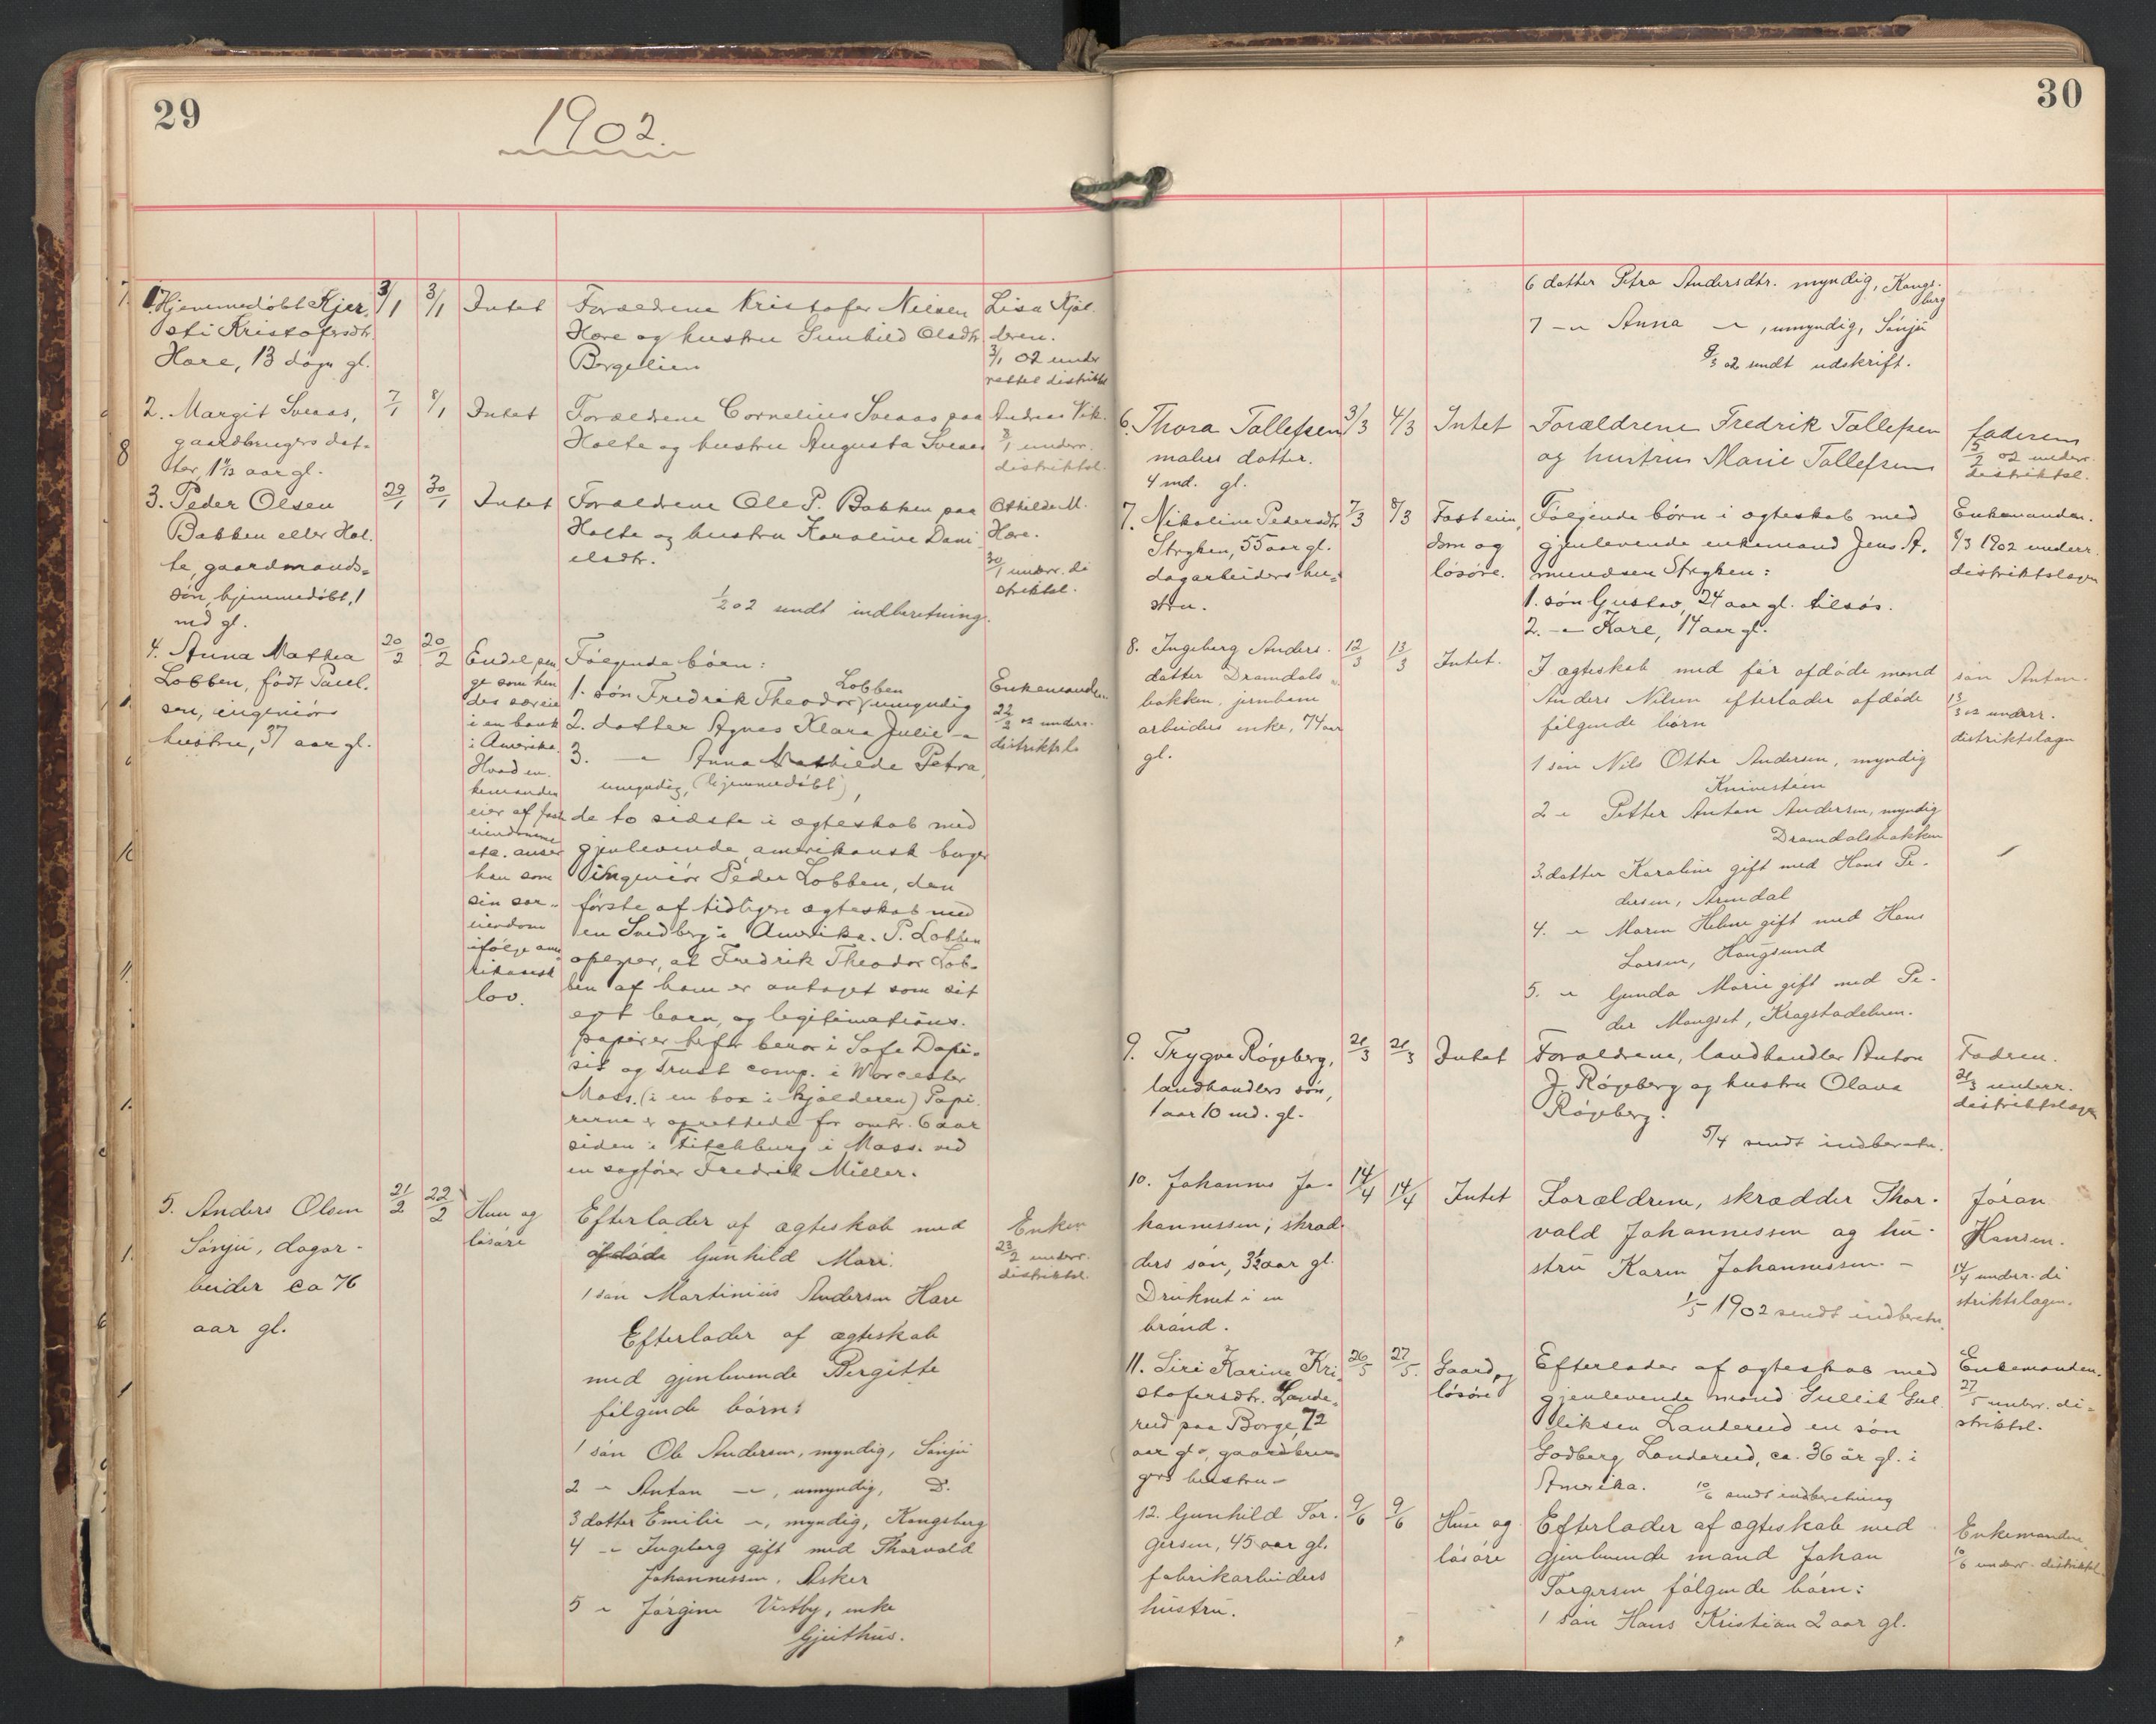 29
1902.
1. Hjemmedøbt Kjer-
sti Kristofersdtr.
Hære, 13 døgn gl.
3/1
3/1
Intet
Forældrene Kristofer Nilsen
Hære og hustru Gunhild Olsdtr.
Borgelien
Lisa Kjøl-
deren.
3/1 02 under
rettet distriktsl
2. Margit Sveaas,
gaardbrugers dat-
ter, 1 1/12 aar gl.
7/1
8/1
Intet
Forældrene Cornelius Sveaas paa
Holte og hustru Augusta Sveaas
Andreas Vik.
8/1 underr.
distriktsl.
3. Peder Olsen
Bakken eller Hol-
te, gaardmands-
søn, hjemmedøbt, 1
md gl.
29/1
30/1
Intet
Forældrene Ole P. Bakken paa
Holte og hustru Karoline Dani
elsdtr.
1/2 02 sendt indberetning.
Othilde M.
Hære.
30/1 underr. di
striktsl.
4. Anna Mathea
Lobben, født Paul-
sen, ingeniørs
hustru, 37 aar gl.
20/2
20/2
Endel pen-
ge som hen
des særeie
i en bank
i Amerika.
Hvad en-
kemanden
eier af faste
eiendomme
etc. anser
han som
sin sær-
eiendom
ifølge ame
rikansk
lov.
Følgende børn:
1. søn Fredrik Theodor Lobben umyndig
2. datter Agnes Klara Julie -"-
3. -"- Anna Mathilde Petra,
umyndig, (hjemmedøbt),
de to sidste i ægteskab med
gjenlevende amerikansk borger
ingeniør Peder Lobben, den
første af tidligere ægteskab med
en Svedberg i Amerika. P. Lobben
opgiver, at Fredrik Theodor Lob-
ben af ham er antaget som sit
eget barn, og legitimations-
papirer herfor beror i Safe Depo-
sit og Trust Comp. i Worcester
Mass. (i en box i kjælderen) Papi-
rerne er oprettede for omtr. 6 aar
siden i Fitchburg i Mass. ved
en sagfører Fredrik Miller.
Enkemanden.
22/2 02 underr.
distriktsl.
5. Anders Olsen
Sønju, dagar-
beider ca 76
aar gl.
21/2
22/2
Huse og
løsøre
Efterlader af ægteskab med
afdøde Gunhild Mari.
1 søn Martinius Andersen Hære
Efterlader af ægteskab
med gjenlevende Bergitte
følgende børn:
1 søn Ole Andersen, myndig, Sønju
2 -"- Anton -"-, umyndig, D.
3 datter Emilie -"-, myndig, Kongsberg
4 -"- Ingeborg gift med Thorvald
Johannessen, Asker
5 -"- Jørgine Vestby, enke
Gjeithus.
Enken
23/2 underr.
distriktsl.
30
6 datter Petra Andersdtr. myndig, Kongs-
berg
7 -"- Anna -"-, umyndig, Sønju
8/3 02 sendt udskrift.
6. Thora Tollefsen
malers datter.
4 md. gl.
3/3
4/3
Intet
Forældrene Fredrik Tollefsen
og hustru Marie Tollefsen
faderen
5/3 02 underr.
distriktsl.
7. Nikoline Pedersdtr
Stryken, 55 aar gl.
dagarbeiders hu-
stru.
7/3
8/3
Fast eien-
dom og
løsøre.
Følgende børn i ægteskab med
gjenlevende enkemand Jens A-
mundsen Stryken:
1. søn Gustav, 24 aar gl. tilsøs.
2. -"- Karl, 14 aar gl.
Enkemanden.
8/3 1902 underr.
distriktslægen
8. Ingeborg Anders-
datter Dramdals-
bakken, jernbane
arbeiders enke, 74 aar
gl.
12/3
13/3
Intet.
I ægteskab med før afdøde mand
Anders Nilsen efterlader afdøde
følgende børn
1 søn Nils Otto Andersen, myndig
Knivestein
2 -"- Petter Anton Andersen, myndig
Dramdalsbakken
3. datter Karoline gift med Hans Pe-
dersen, Armdal
4. -"- Maren Helene gift med Hans
Larsen, Hougsund
5. -"- Gunda Marie gift med Pe-
der Mongset, Kragstadelven.
søn Anton.
13/3 02 underr.
distriktslægen
9. Trygve Røgeberg,
landhandlers søn,
1 aar 10 md. gl.
21/3
21/3
Intet
Forældrene, landhandler Anton
J. Røgeberg og hustru Olava
Røgeberg.
5/4 sendt indberetn.
Fadren.
21/3 underr.
distriktslægen
10. Johannes Jo-
hannessen, skræd-
ders søn, 3 1/2 aar gl.
Druknet i en
brønd.
14/4
14/4
Intet
Forældrene, skrædder Thor-
vald Johannessen og hu-
stru Karen Johannessen. -
1/5 1902 sendt indberetn.
Jøran
Hansen.
14/4 underr. di
striktslægen.
11. Siri Karine Kri-
stofersdtr. Lande-
rud paa Borge, 72
aar gl., gaardbru-
gers hustru -
26/5
27/5.
Gaard og
løsøre
Efterlader af ægteskab med
gjenlevende mand Gullik Gul-
liksen Landerud en søn
Godberg Landerud, ca. 36 år gl. i
Amerika. 10/6 sendt indberetning
Enkemanden.
27/5 underr. di-
striktsl.
12. Gunhild Tor-
gersen, 45 aar gl.
fabrikarbeiders
hustru.
9/6
9/6
Huse og
løsøre
Efterlader af ægteskab med
gjenlevende mand Johan
Torgersen følgende børn:
1 søn Hans Kristian 2 aar gl.
Enkemanden
10/6 underr. distriktsl.